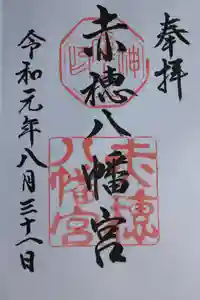 奉拝
赤穂八幡宮
赤穂
八幡宮
令和元年八月三十一日